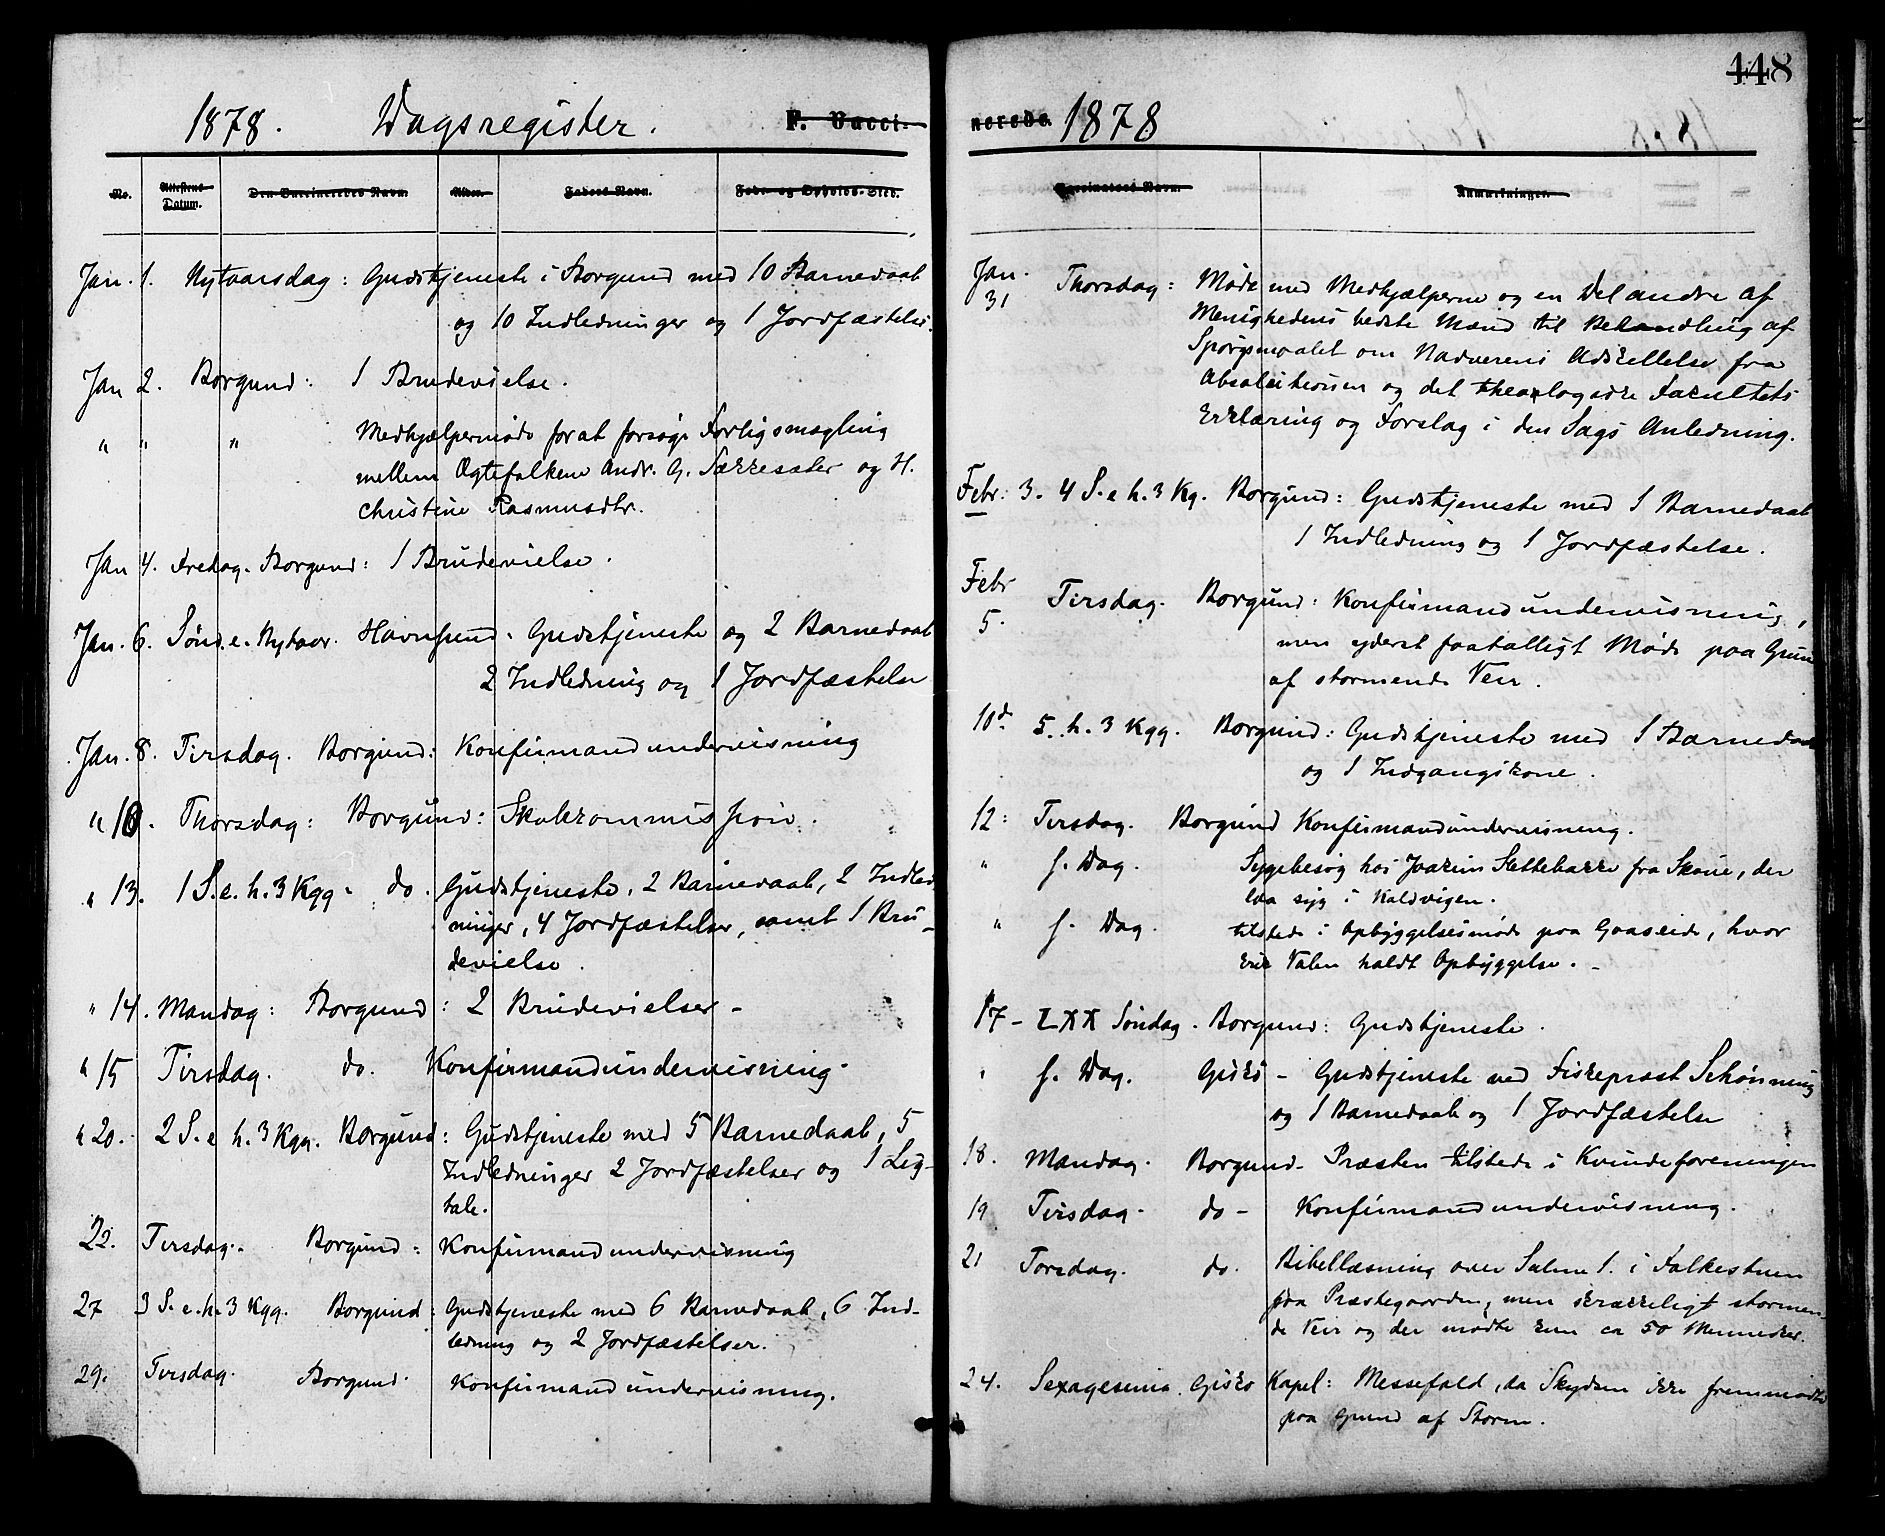 448
1878. Dagsregister. F. Vacci-
No. Attestens Datum. Den Vaccineredes Navn. Alder. Faders Navn. Føde- og Opholds-Sted.
Jan. 1. Nytaarsdag: Gudstjeneste i Borgund med 10 Barnedaab
og 10 Indledninger og 1 Jordfæstelse.
Jan 2. Borgund: 1 Brudevielse.
" " " Medhjælpermøde for at forsøge Forligsmægling
mellem Ægtefolkene Andr. G. Sækkesæter og H.
Christine Rasmusdtr.
Jan 4. Fredag. Borgund: 1 Brudevielse.
Jan. 6. Sønd. e. Nytaar. Havnsund. Gudstjeneste og 2 Barnedaab
2 Indledning og 1 Jordfæstelse
Jan. 8. Tirsdag. Borgund: Konfirmandundervisning
" 10. Thorsdag: Borgund: Skolekommission.
" 13. 1 S. e. h. 3 Kgg. do. Gudstjeneste, 2 Barnedaab, 2 Indled
ninger, 4 Jordfæstelser, samt 1 Bru-
devielse.
" 14. Mandag: Borgund: 2 Brudevielser -
" 15 Tirsdag. do. Konfirmandundervisning.
" 20. 2 S. e h. 3 Kgg. Borgund: Gudstjeneste med 5 Barnedaab, 5
Indledninger 2 Jordfæstelser og 1 Lig-
tale.
22. Tirsdag. Borgund: Konfirmandundervisning
27 3 S. e. h. 3 Kgg. Borgund: Gudstjeneste med 6 Barnedaab, 6 Ind-
ledning og 2 Jordfæstelser.
29. Tirsdag. Borgund. Konfirmandundervisning.
nerede. 1878
Vaccinators Navn. Anmærkninger.
Jan. 31 Thorsdag: Møde med Medhjælperne og en Del andre af
Menighedens bedste Mænd til Behandling af
Spørgsmaalet om Nadverens Adskillelse fra
Absolutionen og det theologiske Fakultets
Erklæring og Forslag i den Sags Anledning.
Febr. 3. 4 S. e h. 3 Kg. Borgund: Gudstjeneste med 1 Barnedaab
1 Indledning og 1 Jordfæstelse.
Febr 5. Tirsdag. Borgund: Konfirmandundervisning,
men yderst faatalligt Møde paa Grund
af stormende Veir.
10d. 5. h. 3 Kgg. Borgund: Gudstjeneste med 1 Barnedaab
og 1 Indgangskone.
12: Tirsdag. Borgund Konfirmandundervisning.
" s. Dag. Sygebesøg hos Joakim Slettebakke fra Skoue, der
laa syg i Kaldvigen.
" s. Dag. tilstede i Opbyggelsesmøde paa Gaaseide, hvor
Erik Valen holdt Opbyggelse. -
17 - LXX Søndag. Borgund: Gudstjeneste.
" s. Dag. Giske - Gudstjeneste ved Fiskeprest Schønning
og 1 Barnedaab og 1 Jordfæstelse
18. Mandag. Borgund - Præsten tilstede i Kvindeforeningen
19 Tirsdag. do - Konfirmandundervisning.
21 Torsdag. do. Bibellæsning over Salme 1. i Folkestuen
paa Præstegaarden, men skrækkeligt stormen-
de Veir og der mødte kun ca 50 Mennesker.
24. Sexagesima. Giske Kapel: Messefald, da Skydsen ikke fremmødte
paa Grund af Storm.